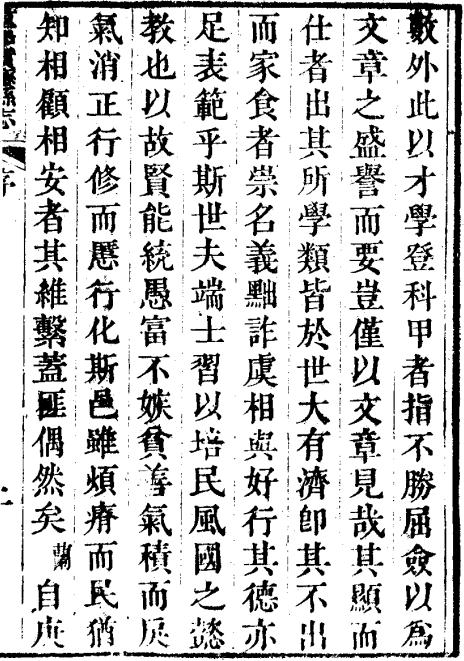 數外此以才學登科甲者指不勝屈僉以爲
文章之盛譽而要豈僅以文章見哉其顯而
仕者出其所學類皆於世大有濟卽其不出
而家食者崇名義黜詐虞相與好行其德亦
足表範乎斯世夫端士習以培民風國之懿
教也以故賢能統愚富不嫉貧善氣積而戾
氣消正行修而慝行化斯邑雖煩瘠而民猶
知相顧相安者其維繫蓋匪偶然矣蘭自庚
縣志
序